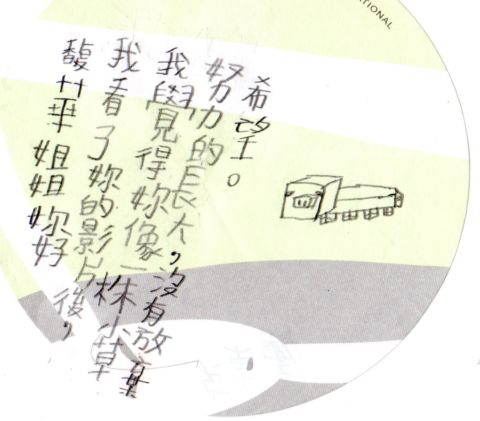 馥華姐姐妳好
我看了妳的影片後,
我覺得妳像一株小草
努力的長大,沒有放棄
希望。
ATIONAL